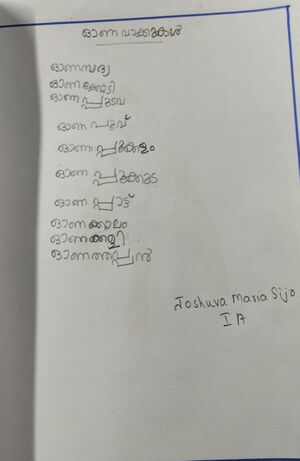 ഓണ വാക്കുകൾ
ഓണസദ്യ
ഓണക്കോടി
ഓണപ്പുടവ
ഓണ പൂവ്
ഓണ പ്പൂക്കളം
ഓണ പ്പൂക്കുട
ഓണ പ്പാട്ട്
ഓണക്കാലം
ഓണക്കളി
ഓണത്തപ്പൻ
Joshuva Maria Sijo
I A